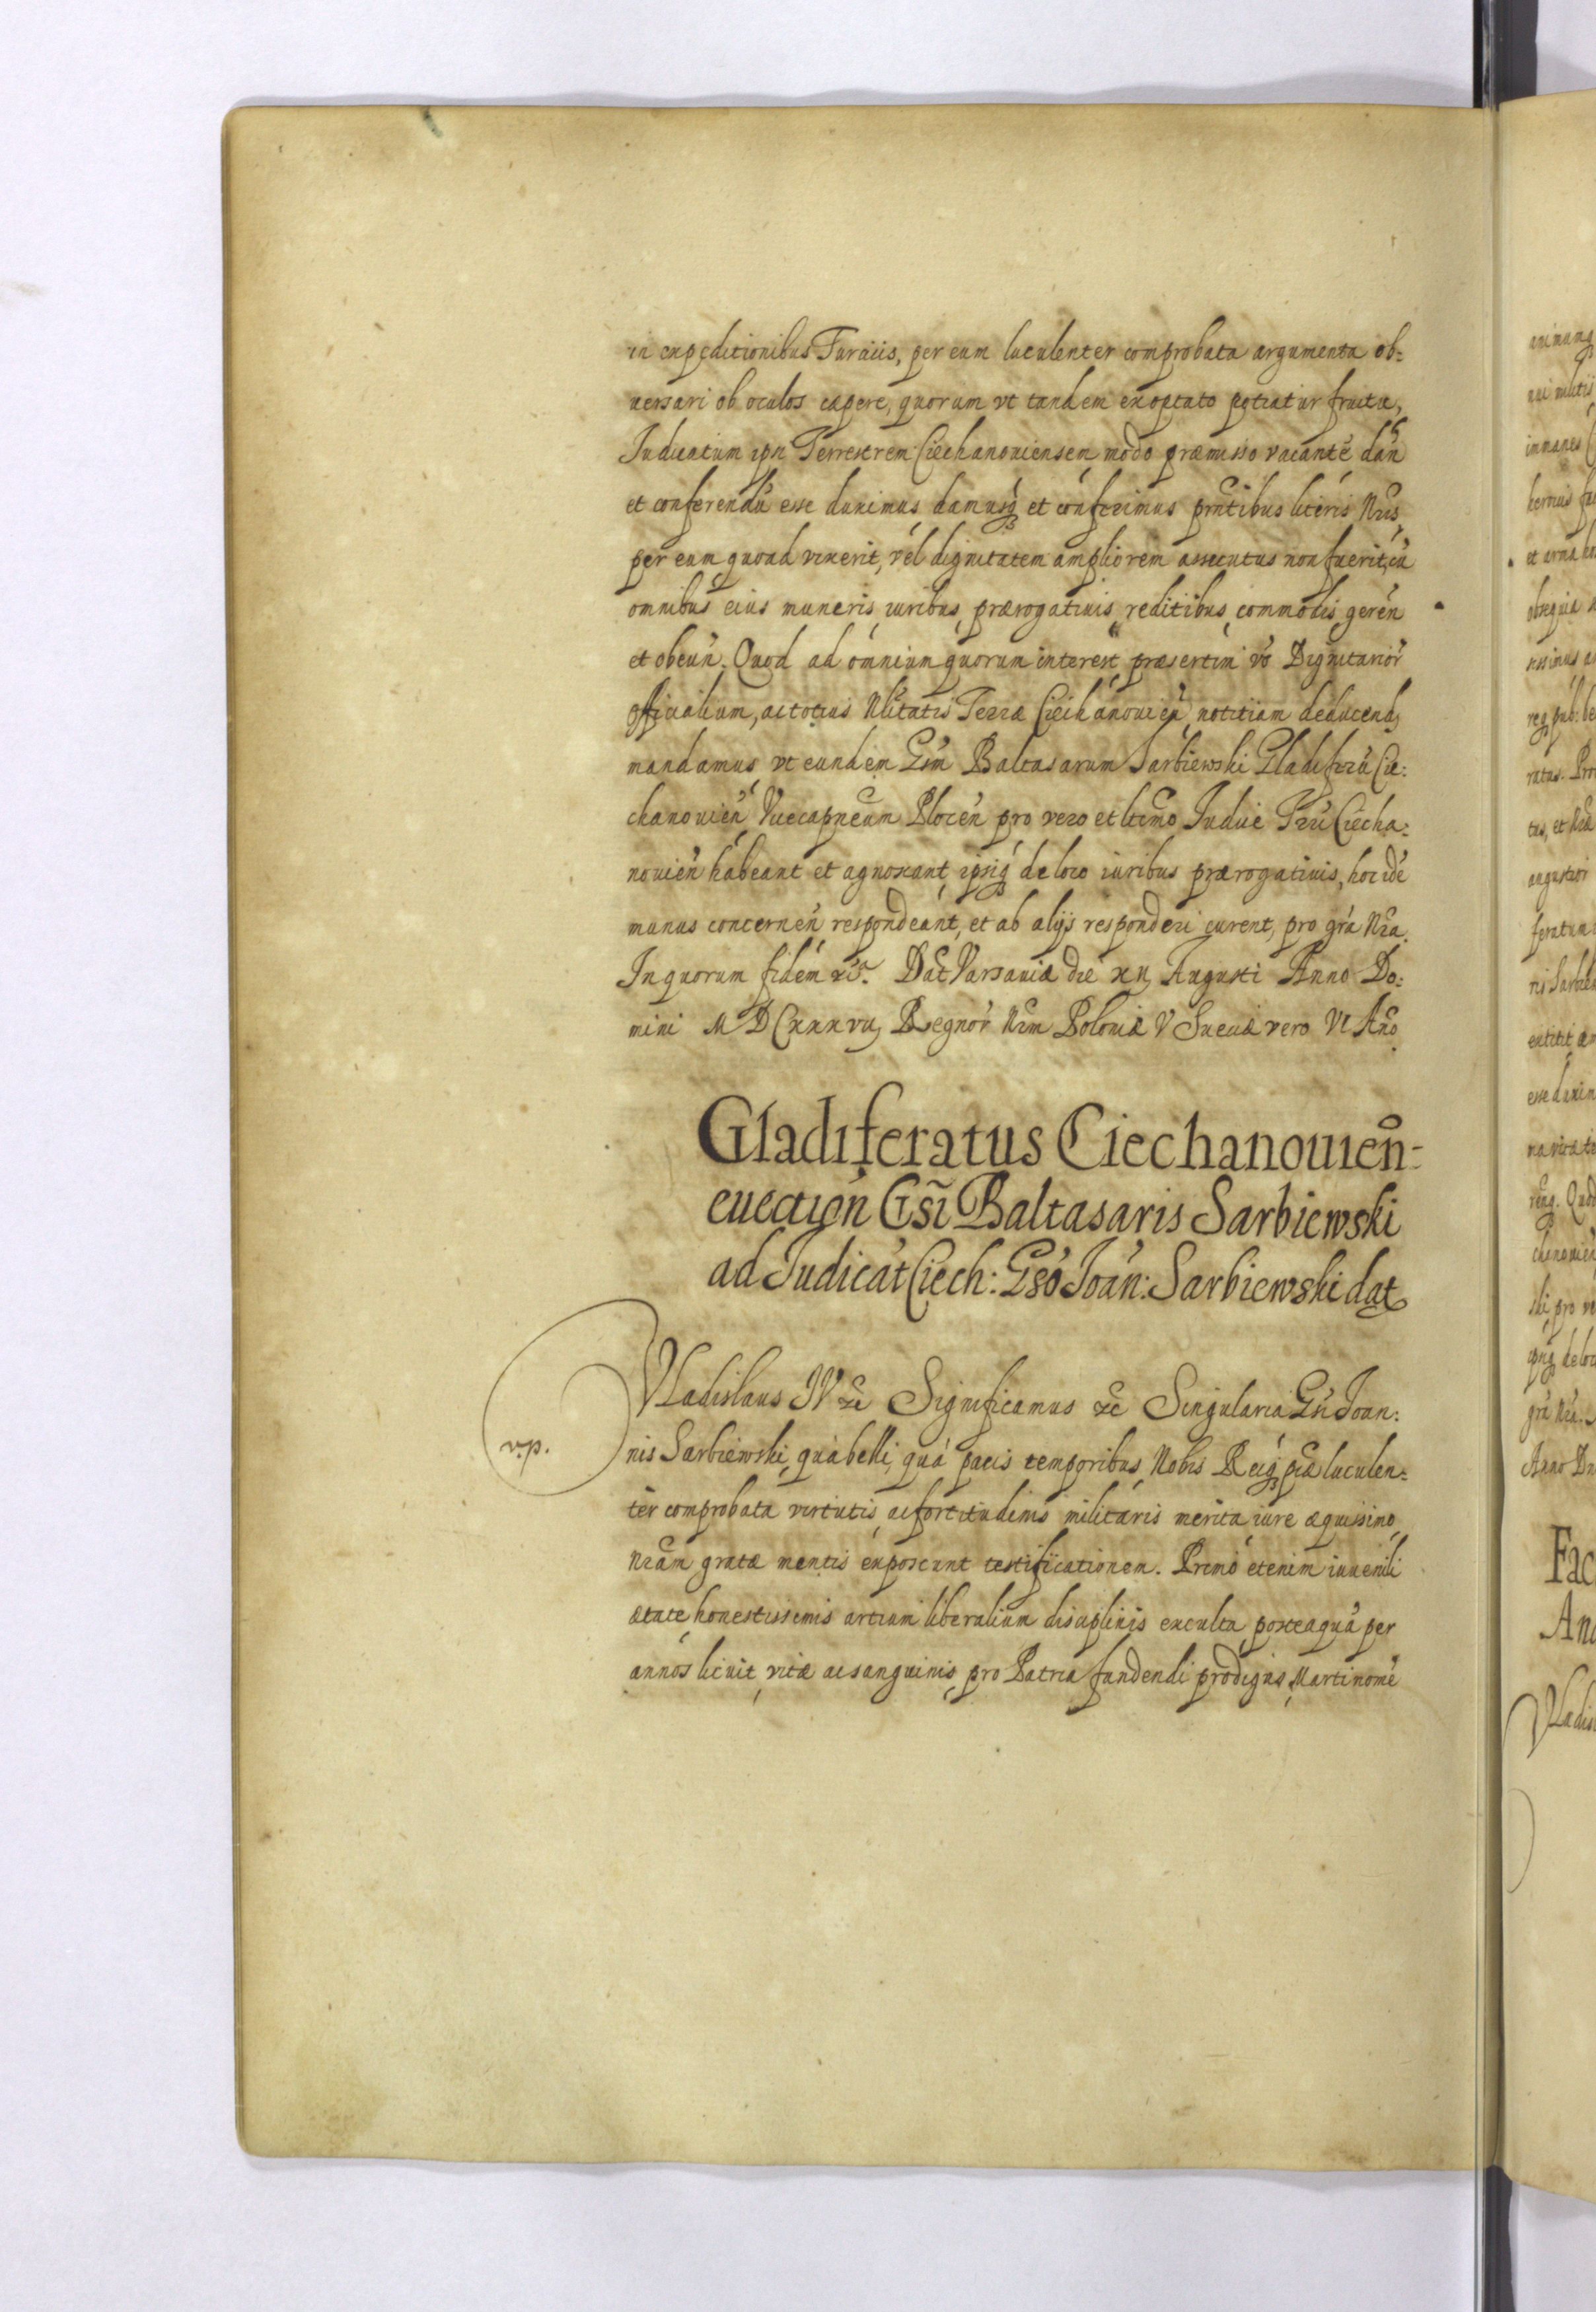 in expeditionibus Turciis, per eum luculenter comprobata argumenta ob=
uersari ob oculos capere, quorum vt tandem exoptato potiatur fructu,
Iudicatum ipsi Terrestrem Ciechanouiensem modo præmisso vacantē dan̄
et conferendū esse duximus damusq et conferimus prn̄tibus literis Nr̄is
per eum quoad vixerit, vel dignitatem ampliorem assecutus non fuerit, cū
omnibus eius muneris, iuribus, prærogatiuis, reditibus, commodis, geren̄
et obeun̄. Quod ad omnium quorum interest, præsertim vō Dignitarior̄
Officialium, ac totius Nlitatis Terræ Ciechanouien̄, notitiam deducend,
mandamus, vt eundem Gsm̄ Baltasarum Sarbiewski Gladiferū Cie:
chanouien̄ Vicecapneum Plocen̄ pro vero et ltimo Iudice Trri Ciecha:
nouien̄ habeant et agnoscant, ipsiq de loco iuribus prærogatiuis, hoc idē
munus concernen̄ respondeant, et ab alijs responderi curent, pro grā Nr̄a.
In quorum fidem etc̄. Dat Varsauiæ die XII Augusti Anno Do:
mini M D C xxx vii, Regnor̄ Nrm̄ Poloniæ V Sueciæ vero VI Ano
Gladiferatus Ciechanouien̄=
euection̄ Gsi Baltasaris Sarbiewski
ad Iudicat Ciech: Gso Ioan: Sarbiewski dat
Vladislaus IV etc̄ Significamus etc̄ Singularia Gsi Ioan:
v.p.
nis Sarbiewski, quà belli, quà pacis temporibus, Nobis Reiq pcæ luculen=
ter comprobata virtutis, ac fortitudinis militaris merita, iure æquissimo
Nr̄am gratæ mentis exposcunt testificationem. Primo etenim iuuenili
ætate, honestissimis artium liberalium disciplinis exculta, posteaquā per
annos licuit, vitæ ac sanguinis, pro Patria fundendi prodigus, Marti nomē